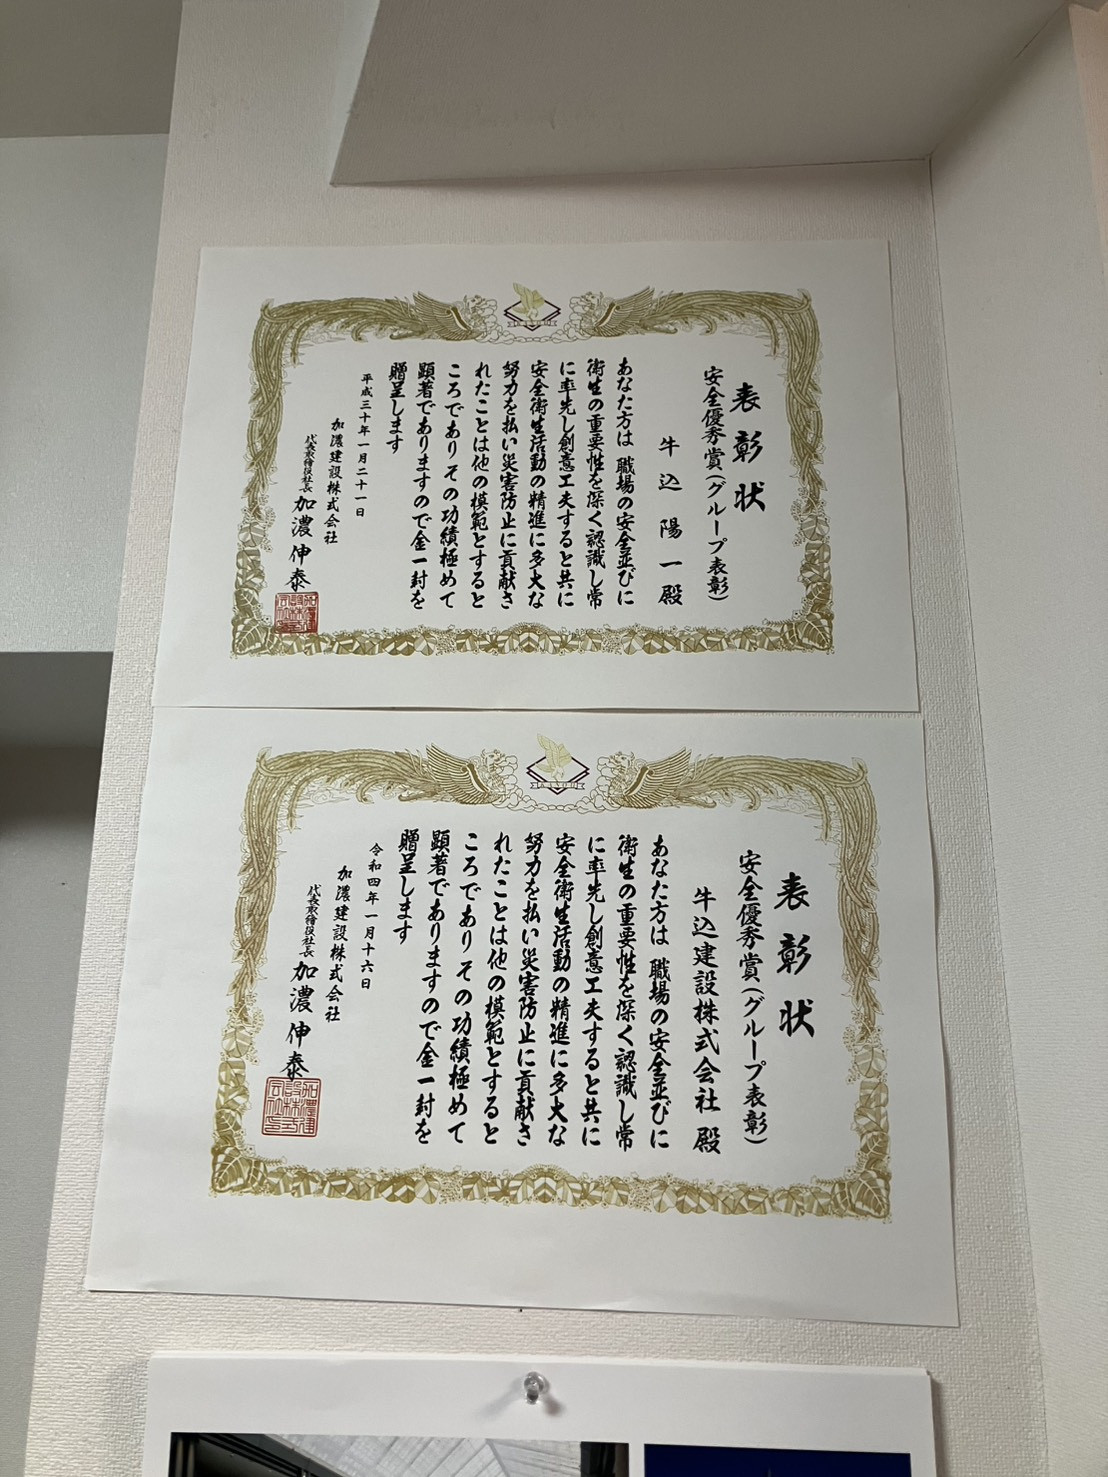 表彰状
安全優秀賞(グループ表彰)
牛込陽一殿
あなた方は 職場の安全並びに
衛生の重要性を深く認識し常
に率先し創意工夫すると共に
安全衛生活動の精進に多大な
努力を払い災害防止に貢献さ
れたことは他の模範とすると
ころであり その功績極めて
顕著でありますので金一封を
贈呈します
平成三十年一月二十一日
加濃建設株式会社
代表取締役社長 加濃伸泰
表彰状
安全優秀賞(グループ表彰)
牛込建設株式会社殿
あなた方は 職場の安全並びに
衛生の重要性を深く認識し常
に率先し創意工夫すると共に
安全衛生活動の精進に多大な
努力を払い災害防止に貢献さ
れたことは他の模範とすると
ころであり その功績極めて
顕著でありますので金一封を
贈呈します
令和四年一月十六日
加濃建設株式会社
代表取締役社長 加濃伸泰